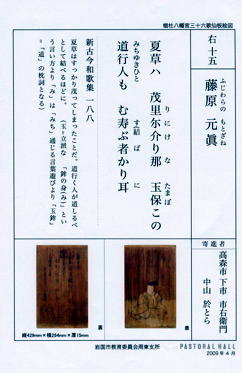 椙杜八幡宮三十六歌仙板絵図
右十五
ふじわらの　もとざね
藤原　元眞
夏草ハ　茂里尓介り那　玉保この
りにけな　たまぼ
みちゆきひと
道行人も　むすふ者かり耳
す(結)ばに
新古今和歌集　一八八
夏草はすっかり茂ってしまったことだ。道行く人が道しるべ
として結べるほどに。(玉=立派な　「鉾の身(み)」とい
う言い方より「み」は「みち」通じる言葉遊びより「玉鉾」
=「道」の枕詞となる)
寄進者
高森市　下市　市右衛門
中山　於とら
表
裏
縦429mm×横264mm×厚15mm
岩国市教育委員会周東支所
PASTORAL HALL
2009年4月